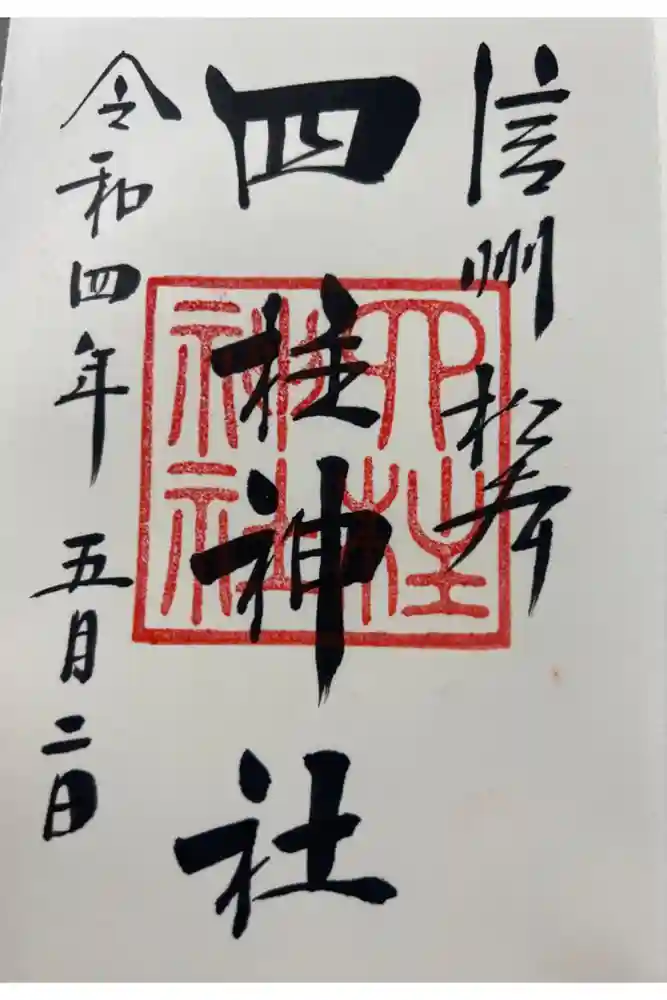 信州 松本
四柱神社
四柱神社
令和四年 五月二日